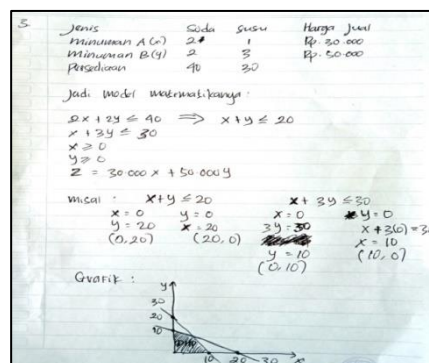 3. Jenis Soda Susu Harga Jual
minuman A (x) 2 1 Rp. 30.000
minuman B (y) 2 3 Rp. 50.000
Persediaan 40 30
Jadi model matematikanya :
2x + 2y ≤ 40 ⟹ x + y ≤ 20
x + 3y ≤ 30
x ≥ 0
y ≥ 0
Z = 30.000 x + 50.000 y
misal : x+y ≤ 20 x + 3y ≤ 30
x = 0 y = 0 x = 0 y = 0
y = 20 x = 20 3y = 30 x + 3(0) = 30
(0,20) (20,0) y = 10 x = 10
(0,10) (10,0)
Grafik :
y
30
20
10
10 20 30 x